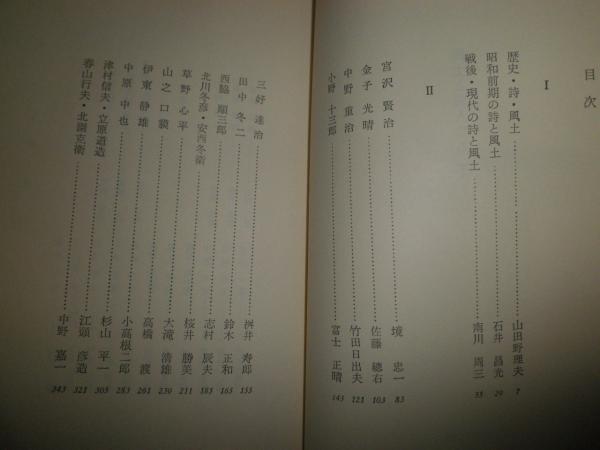 目次
I
歴史・詩・風土 山田野理夫 7
昭和前期の詩と風土 石井昌光 29
戦後・現代の詩と風土 南川周三 55
II
宮沢賢治 境忠一 83
金子光晴 佐藤總右 103
中野重治 竹田日出夫 121
小野十三郎 富士正晴 143
三好達治 桝井寿郎 155
田中冬二 鈴木正和 165
西脇順三郎 志村辰夫 185
北川冬彦・安西冬衛 桜井勝美 211
草野心平 大滝清雄 230
山之口貘 高橋渡 261
伊東静雄 小高根二郎 283
中原中也 杉山平一 305
津村信夫・立原道造 江頭彦造 321
春山行夫・北園克衛 中野嘉一 343